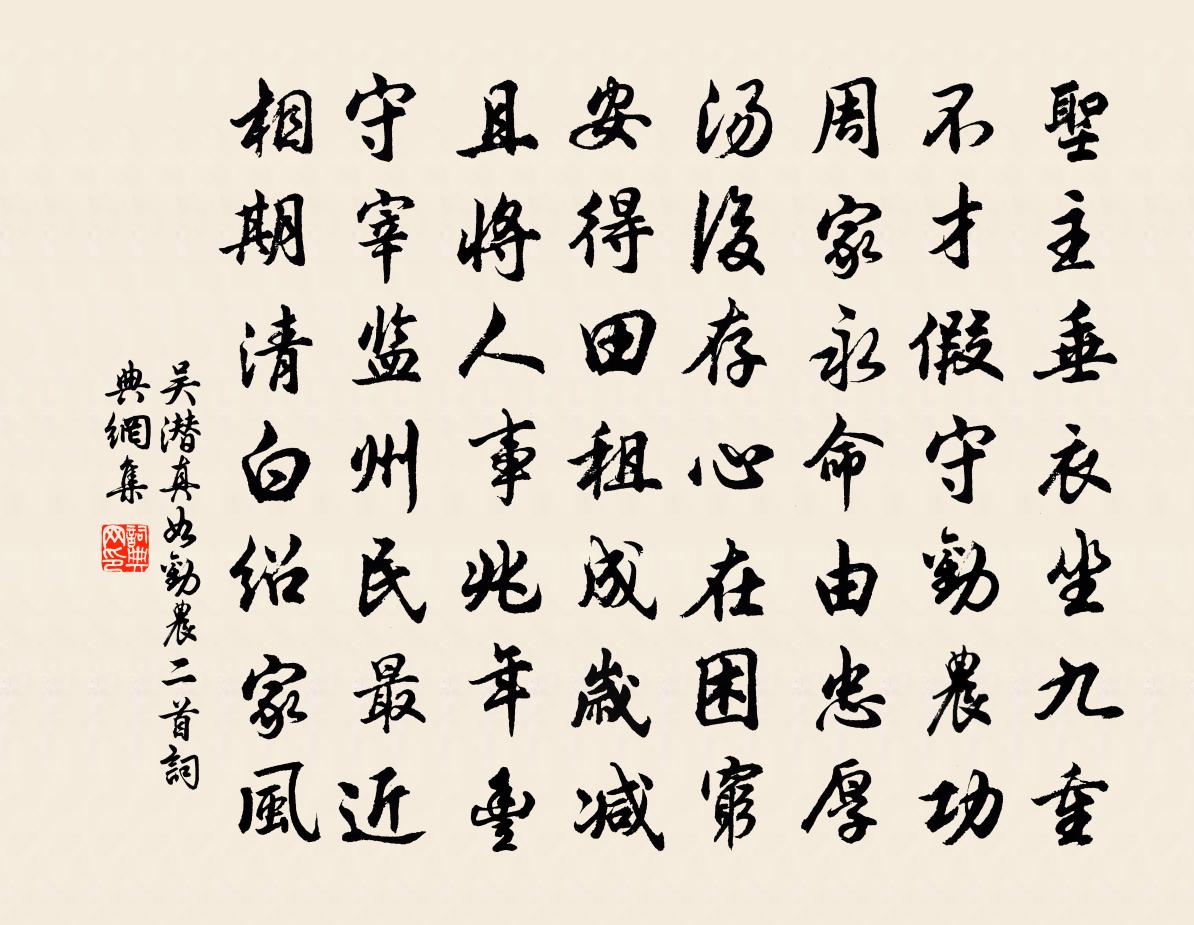 聖主垂衣坐九重
不才假守勸農功
周家永命由忠厚
湯後存心在困窮
安得田租成歲減
且將人事兆年豐
守宰監州民最近
相期清白紹家風
吳潜真如勸農二首詞
典網集
詞典
网印